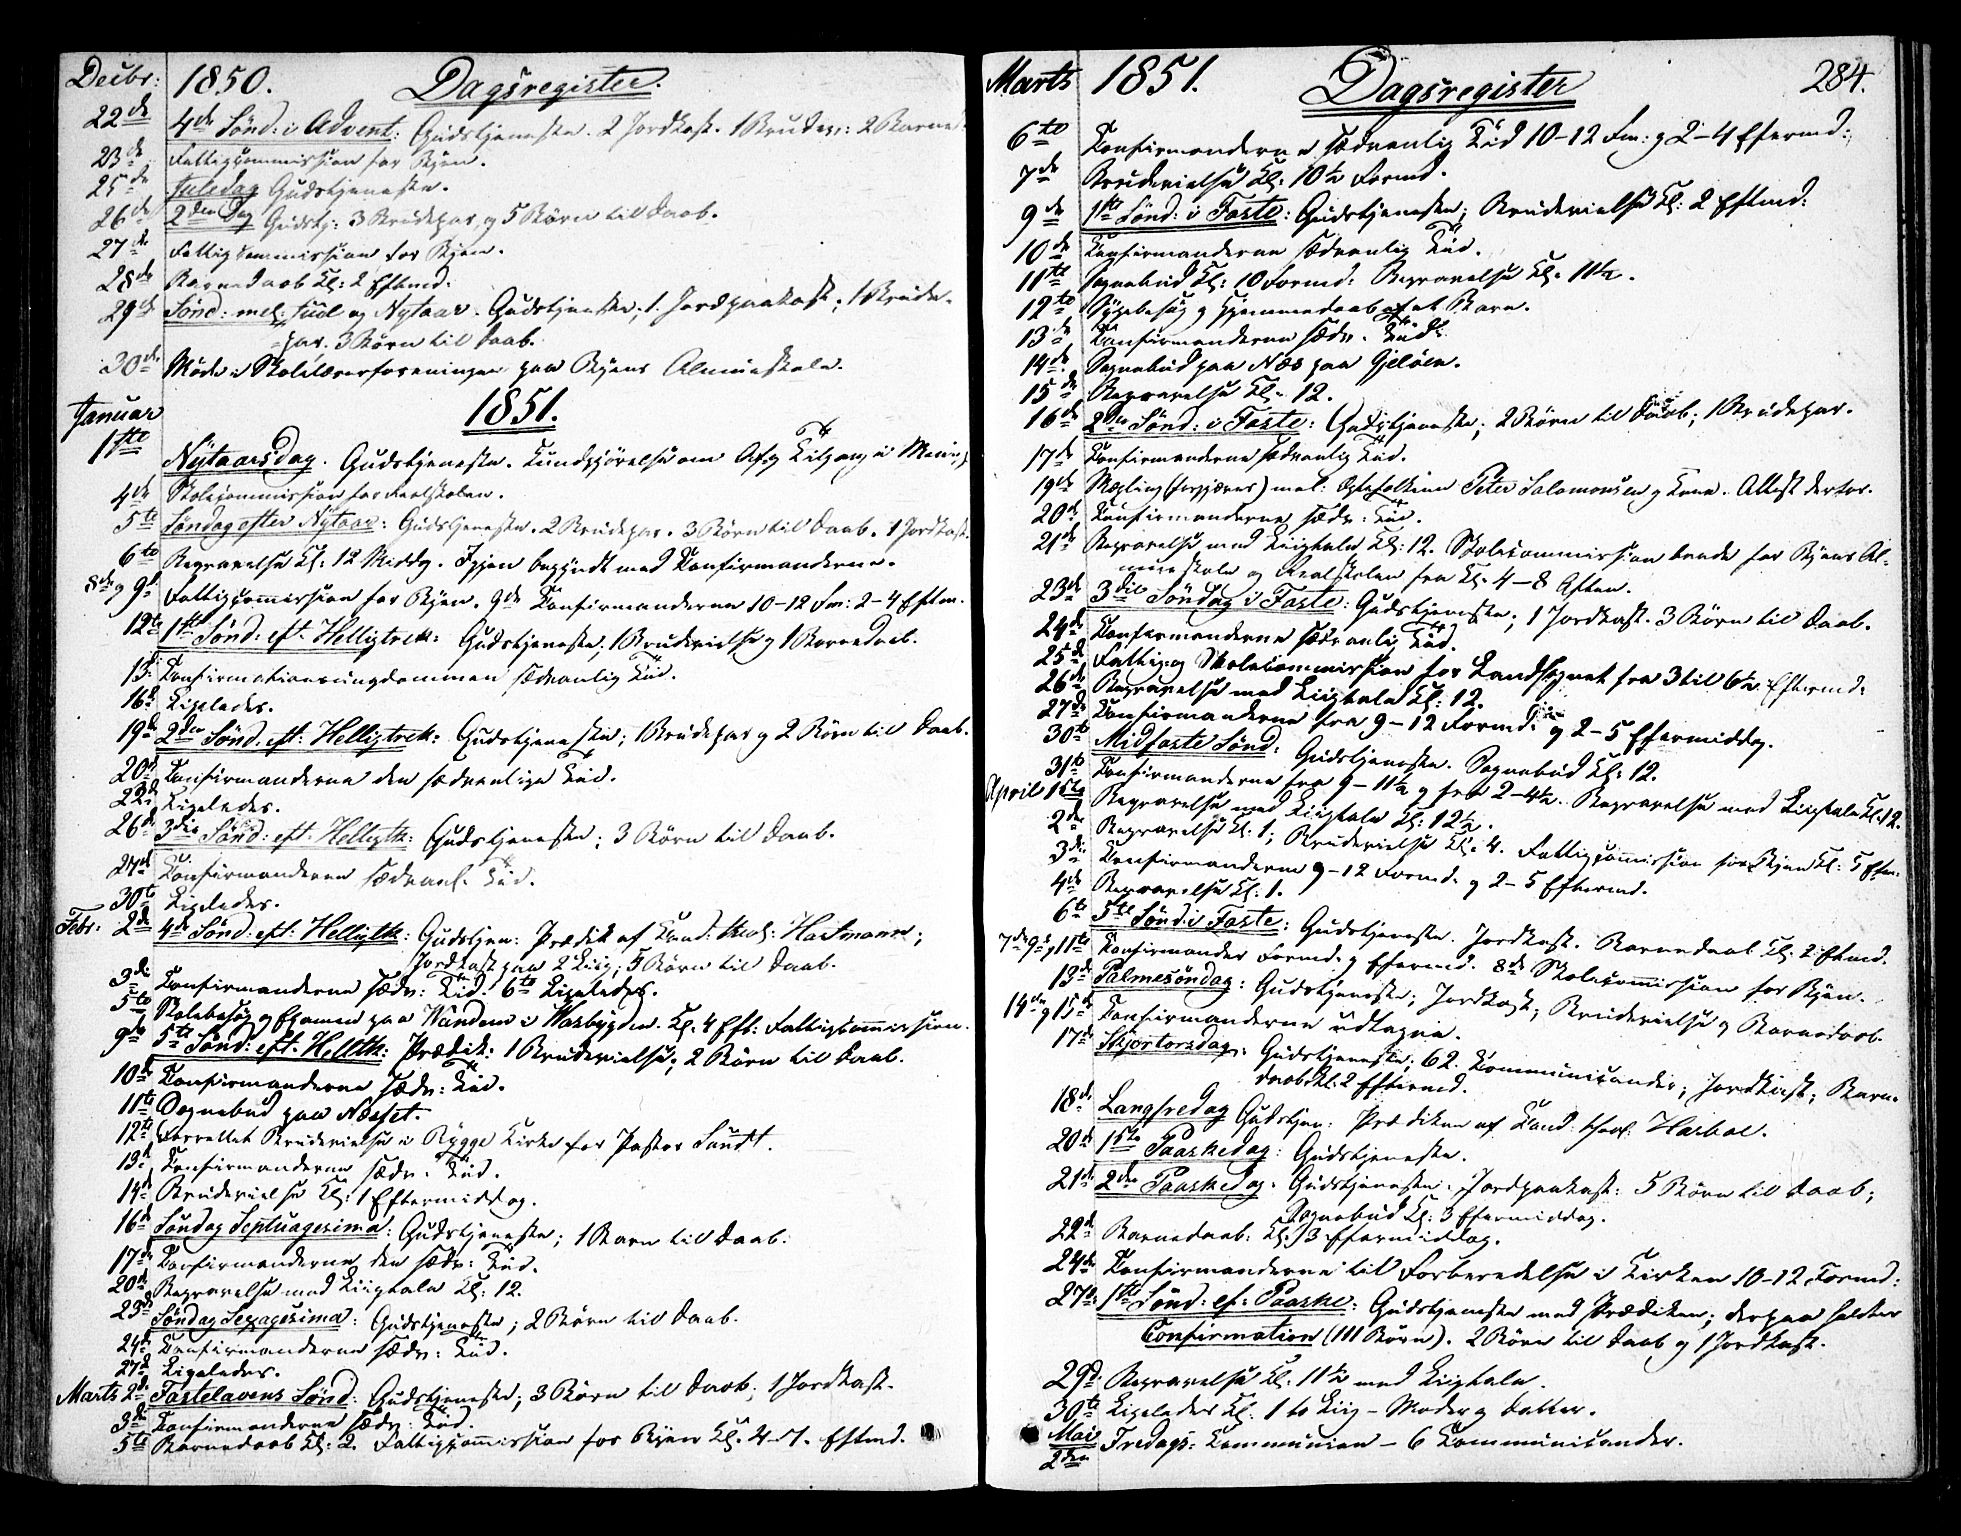 Decbr: 1850. Dagsregister.
22de 4de Sönd: i Advent: Gudstjeneste. 2 Jordkast. 1 Brudep: 2 Barned.
23de Fattigcommission for Byen.
25de Juledag Gudstjeneste.
26de 2den Dag Gudstj: 3 Brudepar og 5 Börn til Daab.
27de Fattigcommission for Byen.
28de Barnedaab Kl: 2 Eftmd.
29de Sönd: mel. Juul og Nytaar. Gudstjeneste; 1. Jordpaakast; 1 Brude-
par. 3 Börn til Daab.
30de Möde i Skolelærerforeningen paa Byens Almueskole.
Januar 1851.
1ste Nytaarsdag. Gudstjeneste. Kundgjörelse om Af- og Tilgang i Menigh.
4de Skolecommission for Realskolen.
5te Söndag efter Nytaar: Gudstjeneste. 2 Brudepar. 3 Börn til Daab. 1 Jordkast.
6te Begravelse Kl: 12 Middg. Igjen begyndt med Confirmanderne.
8de og 9de Fattigcommission for Byen. 9de Confirmanderne 10-12 Fm: 2-4 Eftm.
12te 1ste Sönd: eft. Helligtrek: Gudstjeneste; 1 Brudevielse og 1 Barnedaab.
13de Confirmationsungdommen sædvanlig Tid.
16de Ligeledes.
19de 2den Sönd. eft: Helligtrek: Gudstjeneste; 1 Brudepar og 2 Börn til Daab.
20de Confirmanderne den sædvanlige Tid.
23de Ligeledes.
26de 3die Sönd: eft: Helligtk: Gudstjeneste; 3 Börn til Daab.
27de Confirmanderne sædvanl. Tid.
30te Ligeledes.
Febr. 2de 4de Sönd: eft: Helligtk: Gudstjen: Prædik af Cand: theol: Hartmann;
Jordkast paa 2 Liig; 5 Börn til Daab.
3die Confirmanderne sædv: Tid. 6te Ligeledes.
5te Skolebesög og Examen paa Vandem i Varbygden. Kl. 4 Eft: Fattigcommission.
9de 5te Sönd: eft. Helltk: Prædik: 1 Brudevielse; 2 Börn til Daab.
10de Confirmanderne sædv: Tid.
11te Sognebud paa Næsset.
12te Forrettet Brudevielse i Rygge Kirke for Pastor Sundt.
13de Confirmanderne sædv. Tid.
14de Brudevielse Kl: 1 Eftermiddag.
16de Söndag Septuagesima: Gudstjeneste; 1 Barn til Daab.
17de Confirmanderne den sædv: Tid.
20de Begravelse med Liigtale Kl: 12.
23de Söndag Sexagesima: Gudstjeneste; 2 Börn til Daab.
24de Confirmanderne sædv: Tid.
27de Ligeledes.
Marts 2de Fastelavens Sönd: Gudstjeneste; 3 Börn til Daab; 1 Jordkast.
3die Confirmanderne sædv: Tid.
5te Barnedaab Kl: 2. Fattigcommission for Byen Kl. 4-7. Eftmd.
Marts 1851. Dagsregister 284.
6te Confirmanderne sædvanlig Tid 10-12 Fm: og 2-4 Eftermd:
7de Brudevielse Kl: 10½ Formd.
9de 1ste Sönd: i Faste: Gudstjeneste; Brudevielse Kl: 2 Eftmd:
10de Confirmanderne sædvanlig Tid.
11te Sognebud Kl: 10 Formd: Begravelse Kl. 11½.
12te Sygebesög og Hjemmedaab af et Barn.
13de Confirmanderne sædv. Tid.
14de Sognebud paa Næs paa Gjelöen.
15de Begravelse Kl. 12.
16de 2den Sönd: i Faste: Gudstjeneste; 2 Börn til Daab; 1 Brudepar.
17de Confirmanderne sædvanlig Tid.
19de Mægling (forgjæves) mel: Ægtefolkene Peter Salomonsen og Kone. Attest derfor.
20de Confirmanderne sædv: Tid.
21de Begravelse med Liigtale Kl: 12. Skolecommission baade for Byens Al-
mueskole og Realskolen fra Kl. 4-8 Aften.
23de 3die Söndag i Faste: Gudstjeneste; 1 Jordkast. 3 Börn til Daab.
24de Confirmanderne sædvanlig Tid.
25de Fattig- og Skolecommission for Landsognet fra 3 til 6½ Eftermd:
26de Begravelse med Liigtale Kl: 12.
27de Confirmanderne fra 9-12 Formd: og 2-5 Eftermiddag.
30te Midfaste Sönd: Gudstjeneste. Sognebud Kl: 12.
31te Confirmanderne fra 9-11½ og fra 2-4½. Begravelse med Liigtale Kl: 12.
April 1ste Begravelse med Liigtale Kl: 12½.
2de Begravelse Kl. 1; Brudevielse Kl: 4. Fattigcommission for Byen Kl: 5 Eftm.
3die Confirmanderne 9-12 Formd: og 2-5 Eftermd.
4de Begravelse Kl: 1.
6te 5te Sönd: i Faste: Gudstjeneste. Jordkast. Barnedaab Kl: 2 Eftmd.
7de 9de og 11te Confirmander Formd: og Eftermd. 8de Skolecommission for Byen.
13de Palmesöndag: Gudstjeneste; Jordkast; Brudevielse og Barnedaab.
14de og 15de Confirmanderne udtagne.
17de Skjærtorsdag: Gudstjeneste; 62. Kommunicanter; Jordkast; Barne-
daab Kl: 2 Eftermd.
18de Langfredag Gudstjen: Prædiken af Cand: theol: Harboe.
20de 1ste Paaskedag: Gudstjeneste.
21de 2den Paaskedag. Gudstjeneste. Jordpaakast: 5 Börn til Daab;
Sognebud Kl: 3 Eftermiddag.
22de Barnedaab: Kl: 3 Eftermiddag.
24de Confirmanderne til Forberedelse i Kirken 10-12 Formd:
27de 1ste Sönd: ef: Paaske: Gudstjeneste med Prædiken; derpaa holdtes
Confirmation (111 Börn). 2 Börn til Daab og 1 Jordkast.
29de Begravelse Kl: 11½ med Liigtale.
30te Ligeledes Kl: 1 to Liig - Moder og Datter.
Mai
2den Fredags: Kommunion - 6 Kommunicanter.